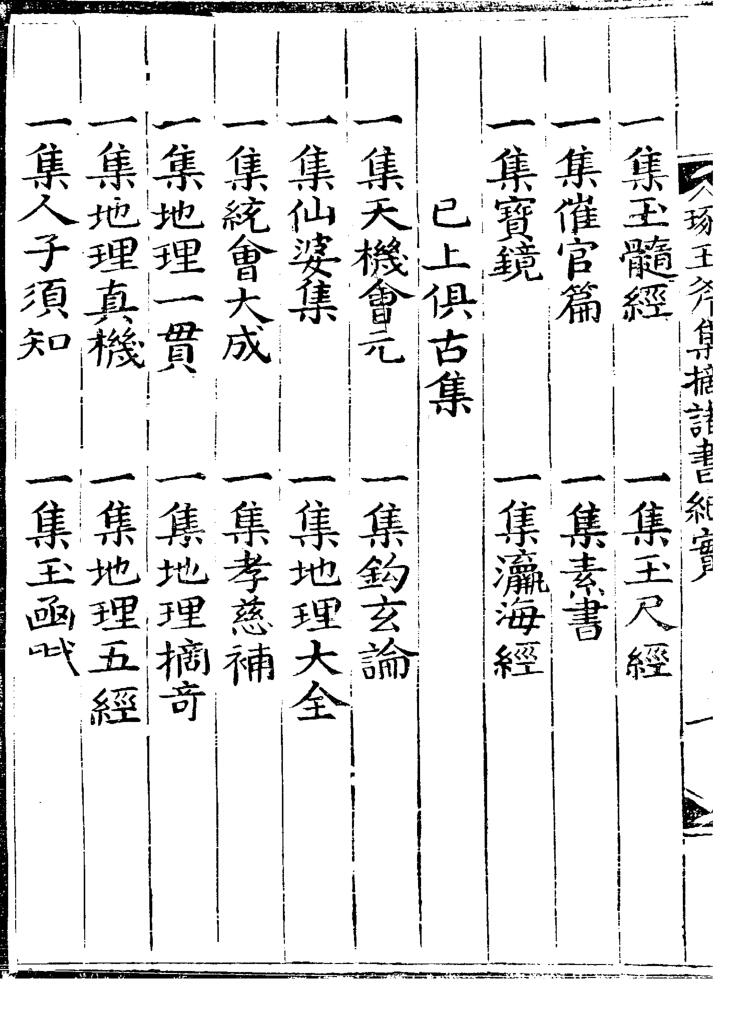 琢玉斧集摘諸書紀實
一集玉髓經 一集玉尺經
一集催官篇 一集素書
一集寶鏡 一集瀛海經
已上俱古集
一集天機會元 一集鈎玄論
一集仙婆集 一集地理大全
一集統會大成 一集孝慈補
一集地理一貫 一集地理摘奇
一集地理真機 一集地理五經
一集人子須知 一集玉函